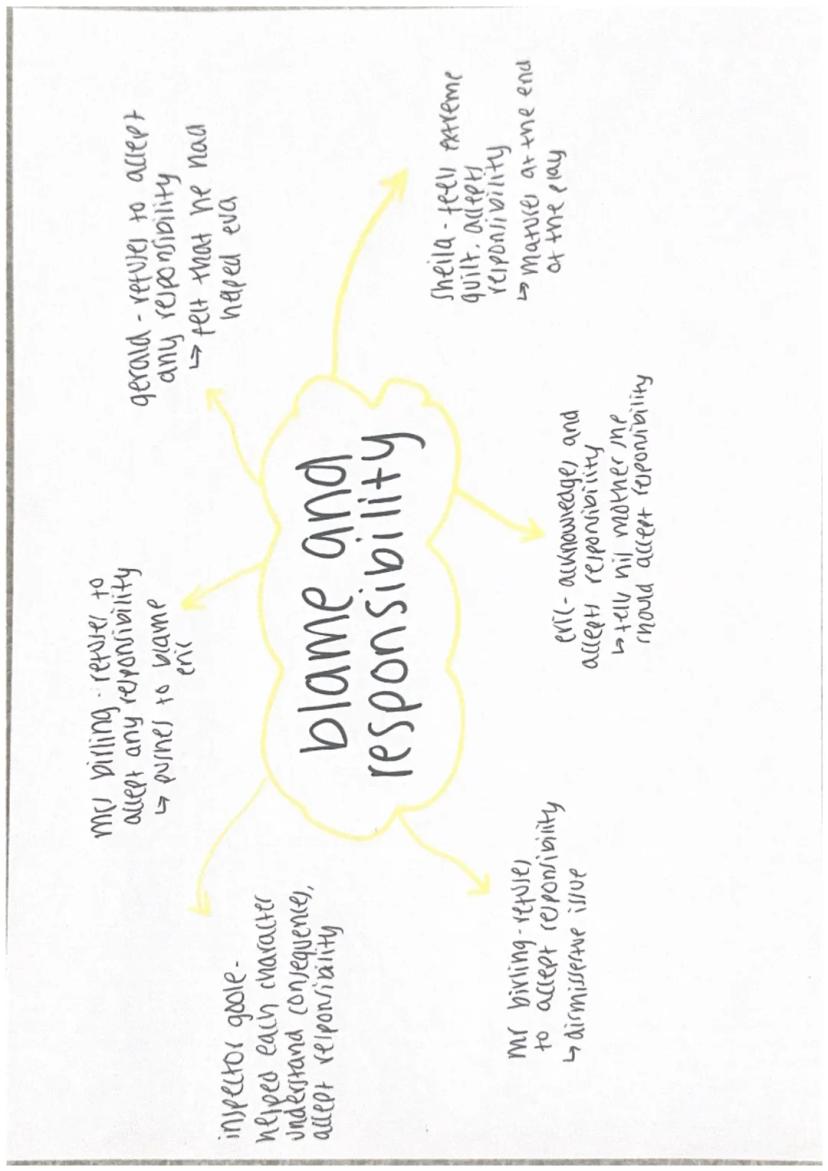 inspector goole -
helped each character
understand consequences,
accept responsibility
mrs birling - refuses to
accept any responsibility
↳ pushes to blame
eric
gerald - refuses to accept
any responsibility
↳ felt that he had
helped eva
blame and
responsibility
mr birling - refuses
to accept responsibility
↳ dismissive issue
eric - acknowledges and
accepts responsibility
↳ tells his mother she
should accept responsibility
sheila - feels extreme
guilt, accepts
responsibility
↳ matures at the end
of the play